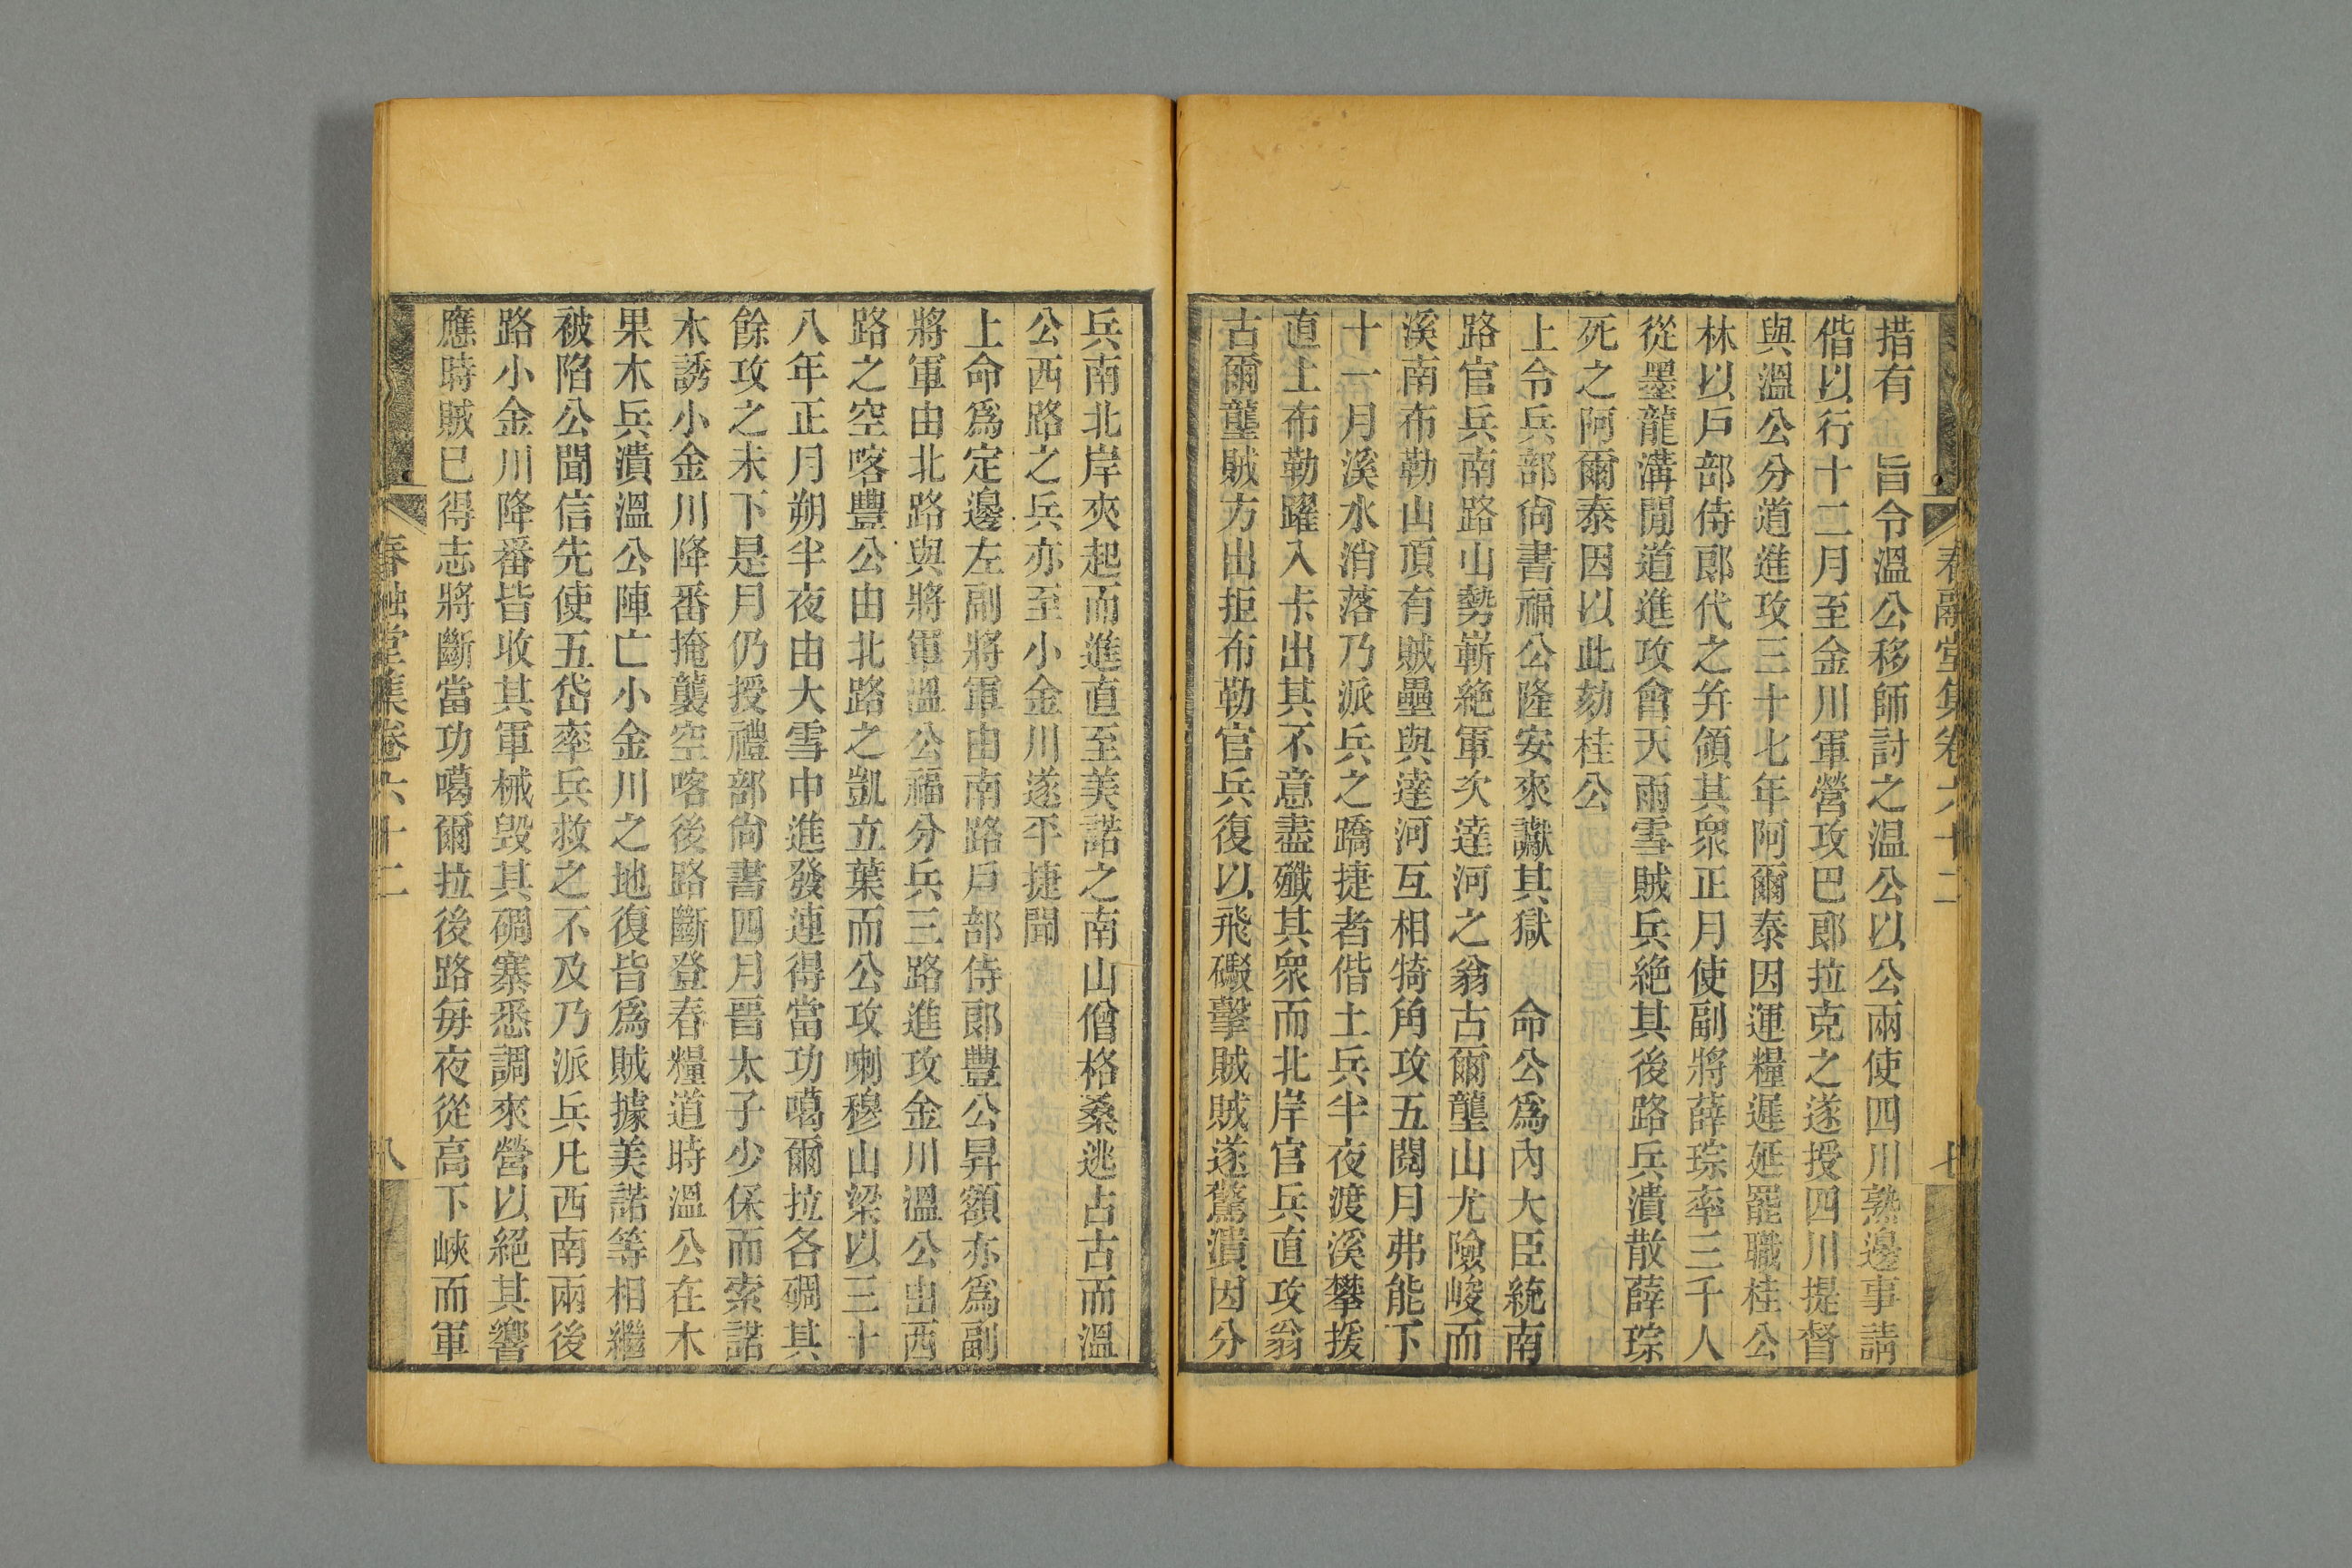 春融堂集卷六十二
七
措有 旨令溫公移師討之溫公以公兩使四川熟邊事請
偕以行十二月至金川軍營攻巴郎拉克之遂授四川提督
與溫公分道進攻三十七年阿爾泰因運糧遲延罷職桂公
林以戶部侍郎代之并領其衆正月使副將薛琮率三千人
從墨龍溝閒道進攻會天雨雪賊兵絶其後路兵潰散薛琮
死之阿爾泰因以此劾桂公
上令兵部尙書福公隆安來讞其獄 命公爲內大臣統南
路官兵南路山勢嶄絶軍次達河之翁古爾壟山尤險峻而
溪南布勒山頂有賊壘與達河互相犄角攻五閱月弗能下
十一月溪水消落乃派兵之蹻捷者偕土兵半夜渡溪攀援
直上布勒躍入卡出其不意盡殲其衆而北岸官兵直攻翁
古爾壟賊方出拒布勒官兵復以飛礮擊賊賊遂驚潰因分
兵南北岸夾起而進直至美諾之南山僧格桑逃占古而溫
公西路之兵亦至小金川遂平捷聞
上命爲定邊左副將軍由南路戶部侍郎豐公昇額亦爲副
將軍由北路與將軍溫公福分兵三路進攻金川溫公出西
路之空喀豐公由北路之凱立葉而公攻喇穆山梁以三十
八年正月朔半夜由大雪中進發連得當功噶爾拉各碉其
餘攻之未下是月仍授禮部尙書四月晉太子少保而索諾
木誘小金川降番掩襲空喀後路斷登春糧道時溫公在木
果木兵潰溫公陣亡小金川之地復皆爲賊據美諾等相繼
被陷公聞信先使五岱率兵救之不及乃派兵凡西南兩後
路小金川降番皆收其軍械毁其碉寨悉調來營以絕其響
應時賊已得志將斷當功噶爾拉後路每夜從高下峽而軍
春融堂集卷六十二
八